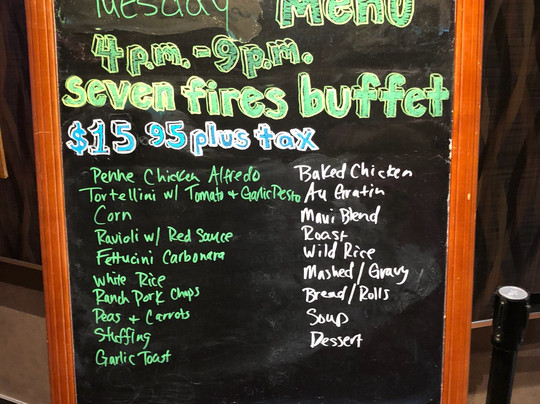 Tuesday Menu
4p.m.-9p.m.
seven fires buffet
$15 95 plus tax
Penne Chicken Alfredo
Tortellini w/ Tomato + Garlic Pesto
Corn
Ravioli w/ Red Sauce
Fettucini Carbonara
White Rice
Ranch Pork Chops
Peas + Carrots
Stuffing
Garlic Toast
Baked Chicken
Au Gratin
Maui Blend
Roast
Wild Rice
Mashed/Gravy
Bread/Rolls
Soup
Dessert